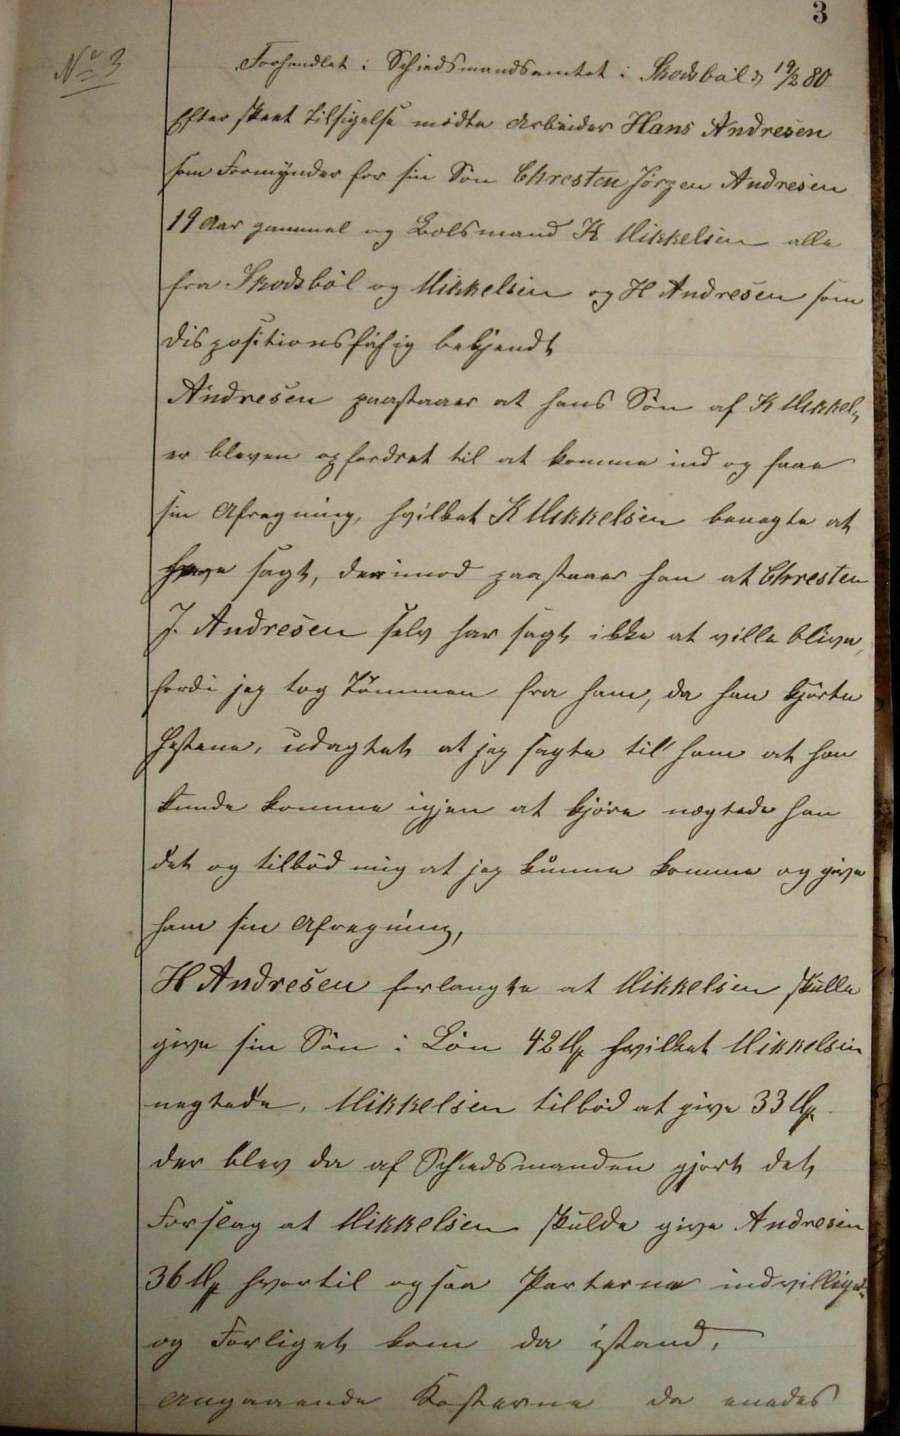 3
No 3
Forhandlet i Schiedsmandsamtet i Skodsböl d 19/2 80
Efter skeet Tilsigelse mødte Arbeider Hans Andresen
som Formynder for sin Søn Chresten Jörgen Andresen
19 Aar gammel og Bolsmand K Mikkelsen alle
fra Skodsböl og Mikkelsen og H Andresen som
dispositionsfähig bekjendt
Andresen paastaaer at hans Søn af K Mikkels
er bleven opfordret til at komme ind og faae
sin Afregning, hvilket K Mikkelsen benegte at
have sagt, derimod paastaaer han at Chresten
J. Andresen selv har sagt ikke at ville blive,
fordi jeg tog Tömmen fra ham, da han kjörte
Hestene, udagtet at jeg sagte till ham at han
kunde komme igjen at kjöre negtede han
det og tilböd mig at jeg kunne komme og give
ham sin Afregning,
H Andresen forlangte at Mikkelsen skulle
give sin Sön i Lön 42 M hvilket Mikkelsen
negtede. Mikkelsen tilböd at give 33 M
der blev da af Schiedsmanden gjort det
Forslag at Mikkelsen skulde give Andresen
36 M hvortil ogsaa Parterne indvilliged
og Forliget kom da istand,
Angaaende Kosterne da enedes